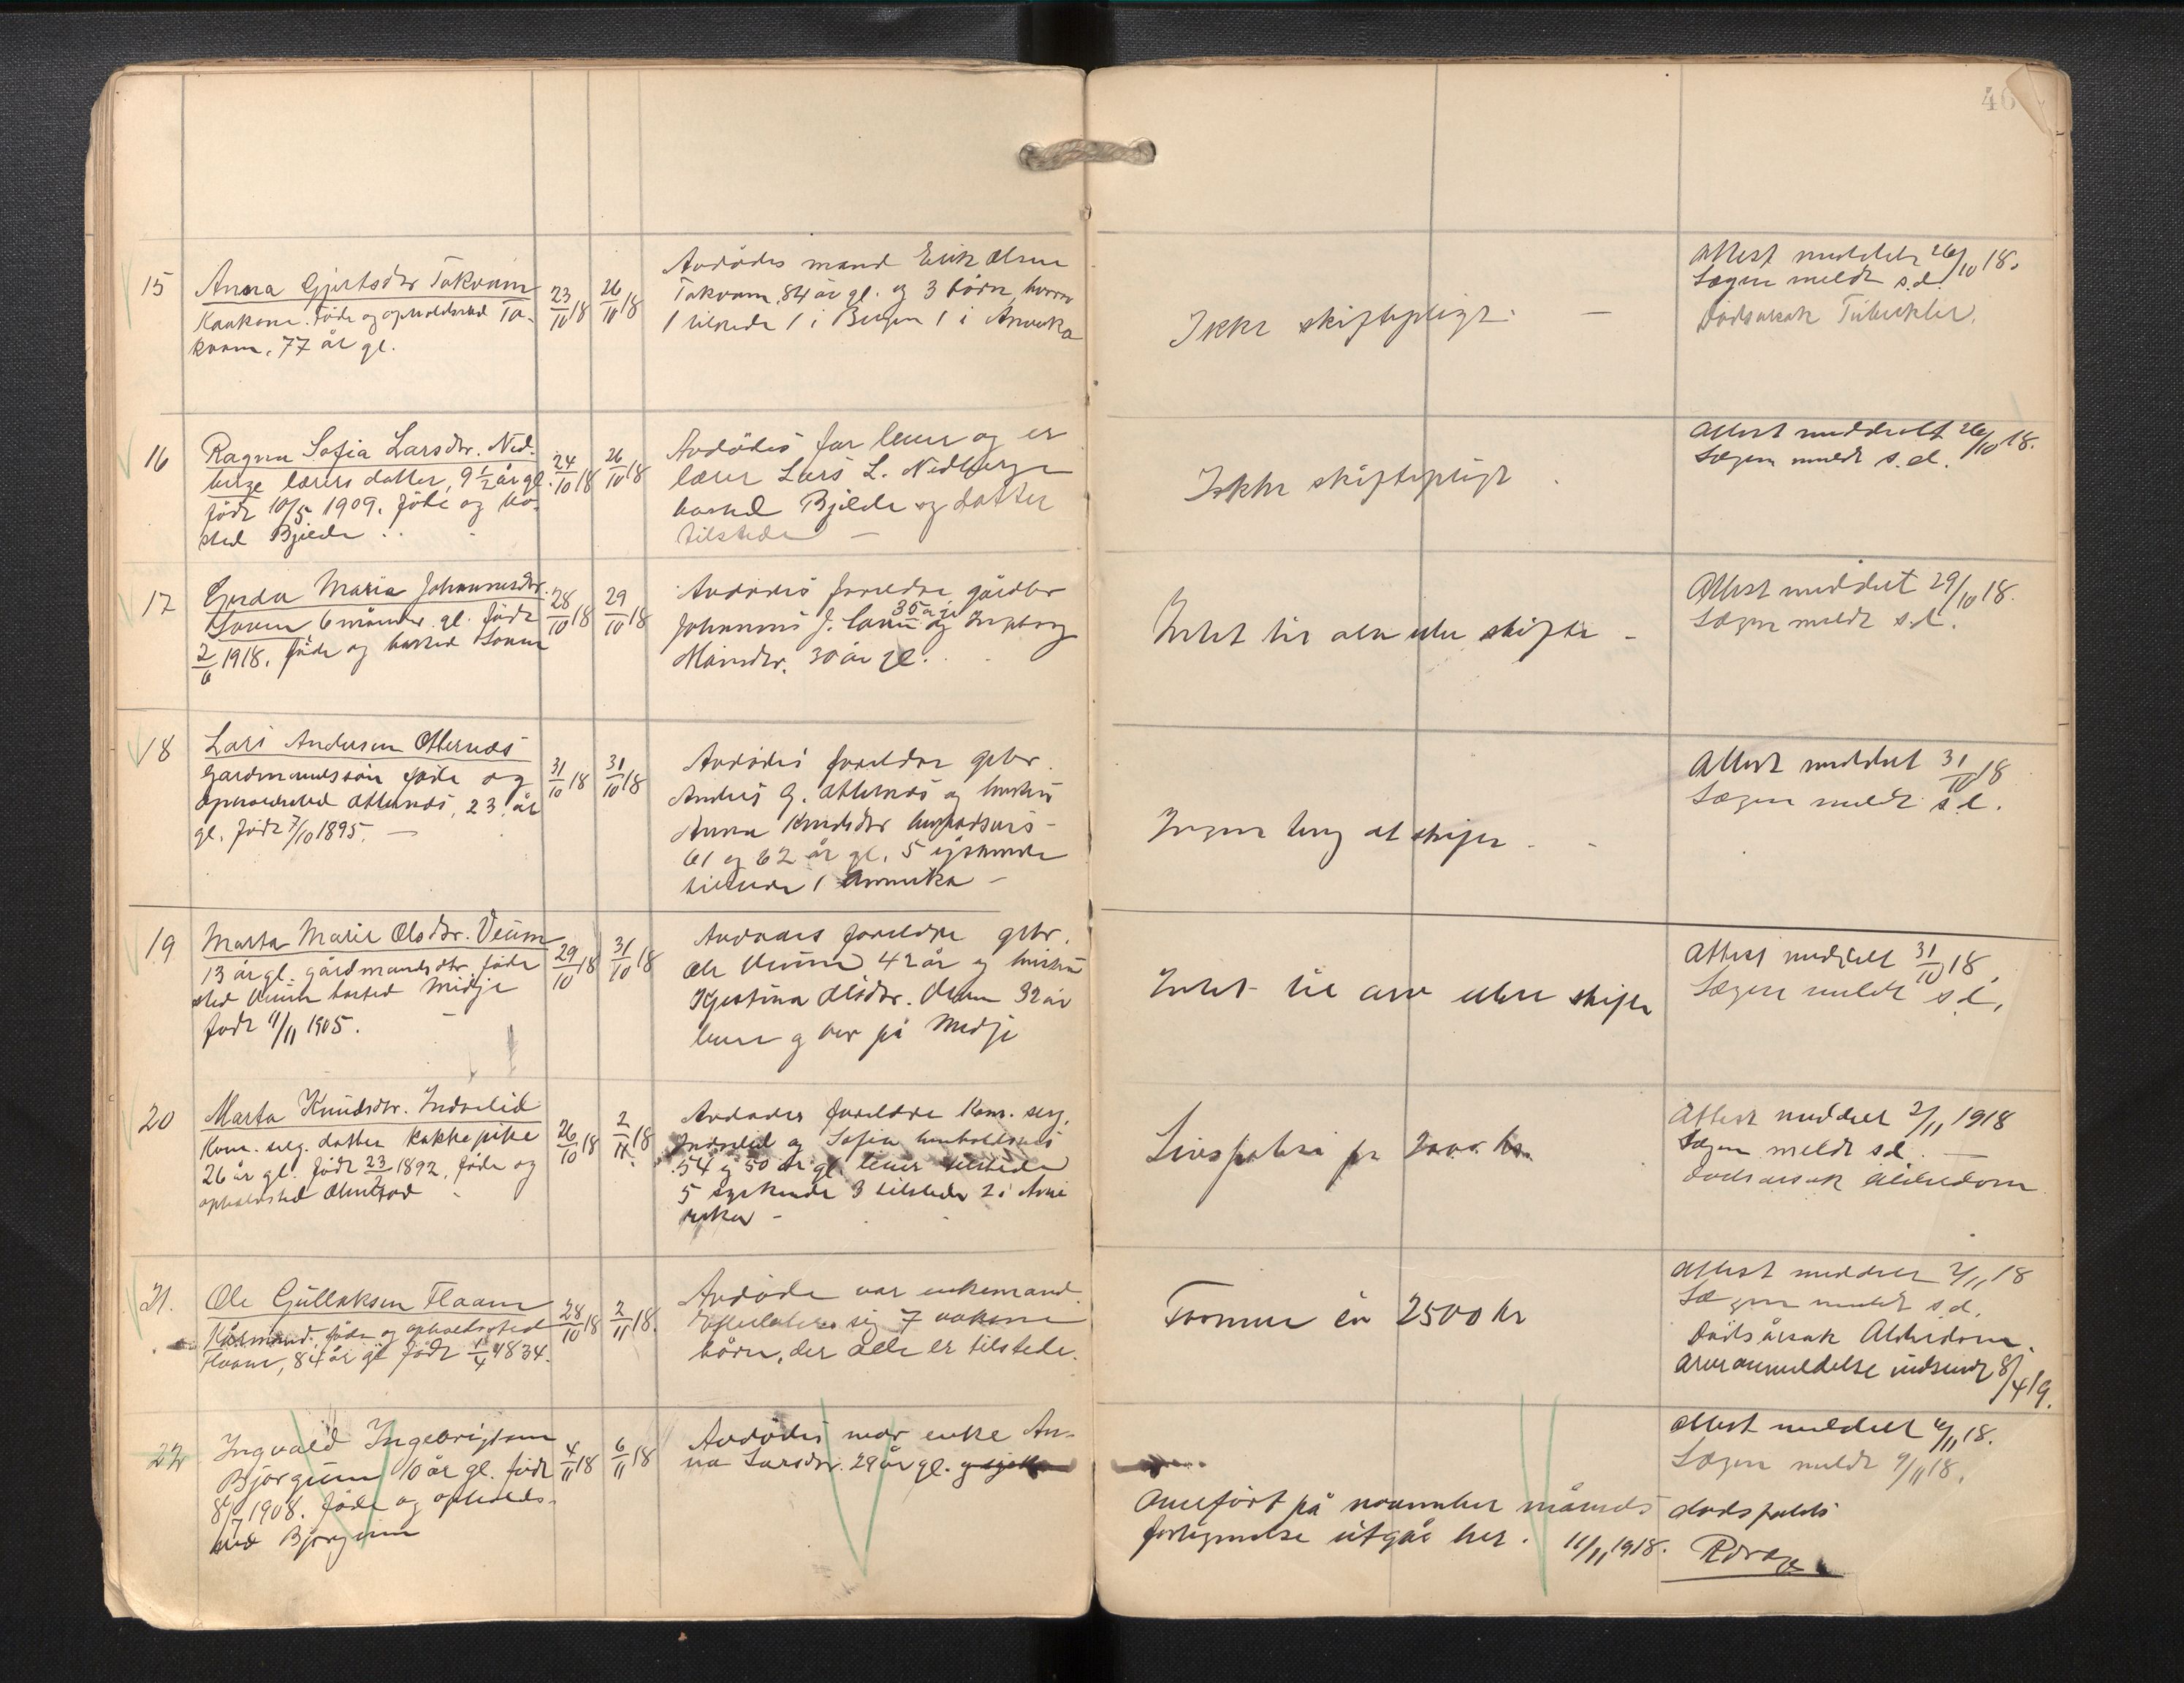 40
15 Anna Gjertsdtr Tokvam
Kaakone. Føde og opholdssted To-
kvam, 77 år gl.
23/10 18 26/10 18
Avdødes mand Erik Olsen
Tokvam, 84 år gl. og 3 børn, hvorav
1 tilstede 1 i Bergen 1 i Amerika
Ikke skiftepligt. —
Attest meddelt 26/10 18.
Lægen meldt s.d.
Dødsårsak Tuberkler.
16 Ragna Sofia Larsdtr. Ned-
berge lærers datter, 9 1/2 år gl.
født 10/5 1909. Føde og bo-
sted Bjelde
24/10 18 26/10 18
Avdødes far lever og er
lærer Lars L. Nedberge
bosted Bjelde og datter
tilstede —
Ikke skiftepligt
Attest meddelt 26/10 18.
Lægen meldt s.d.
17 Gerda Maria Johannesdtr.
6 måneder gl. født
2/6 1918. føde og bosted
28/10 18 29/10 18
Avdødes foreldre gårdbr
35 år gl
Johannes J. og Ingeborg
Monsdtr. 30 år gl.
Intet til arv eller skifte -
Attest meddelt 29/10 18.
Lægen meldt s.d.
18 Lars Andersen Otternæs
Gardmandssøn føde og
opholdssted Otternæs, 23 år
gl. født 7/10 1895. —
31/10 18 31/10 18
Avdødes foreldre gbr.
Anders G. Otternæs og hustru
Anna Knudsdtr henholdsvis
61 og 62 år gl. 5 søskende
tilstede 1 Amerika -
Ingen ting at skifte
Attest meddelt 31/10 18
Lægen meldt s.d.
19 Marta Marie Olsdtr. Veum
13 år gl. gårdmandsdtr. føde
sted Veum bosted Midje
født 4/11 1905. —
29/10 18 31/10 18
Avdødes foreldre gbr.
Ole Veum 42 år og hustru
Kjestina Olsdtr. Veum 32 år
lever og bor på Midje
Intet til arv eller skifte
Attest meddelt 31/10 18
Lægen meldt s.d.
20 Marta Knudsdtr. Indrelid
Kom. serg. datter kokkepike
26 år gl. født 23/2 1892. føde og
opholdssted
26/10 18 2/11 18
Avdødes foreldre kom. serg.
Indrelid og Sofia henholdsvis
54 og 50 år gl. lever tilstede
5 syskende 3 tilstede 2 i Ame
rika -
Livspolise pr 2000 kr.
Attest meddelt 2/11 1918
Lægen meldt s.d. —
Dødsårsak
21. Ole Gullaksen Flaam
Kårmand. føde og opholdssted
Flaam, 84 år gl født 1/4 1834.
28/10 18 2/11 18.
Avdøde var enkemand.
Efterlater sig 7 voksne
børn, der alle er tilstede.
Formue ca 2500 kr
Attest meddelt 2/11 18
Lægen meldt s.d.
Dødsårsak Alderdom.
Arveanmeldelse indsendt 8/4 19.
22 Ingvald Ingebrigtsen
Bjørgum 10 år gl. født
8/7 1908. føde og opholds-
sted Bjørgum
4/11 18 6/11 18
Avdødes mor enke An-
na Larsdtr. 29 år gl.
Attest meddelt 6/11 18.
Lægen meldt 9/11 18.
Overført på november måneds dødsfalds
fortegnelse utgår her. 11/11 1918.